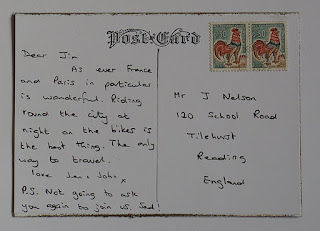 Post-Card
Dear Jim
As ever France
and Paris in particular
is wonderful. Riding
round the city at
night on the bikes is
the best thing. The only
way to travel.
love Jen & John x
P.S. Not going to ask
you again to join us. Sad!
Mr J Nelson
120 School Road
Tilehurst
Reading
England